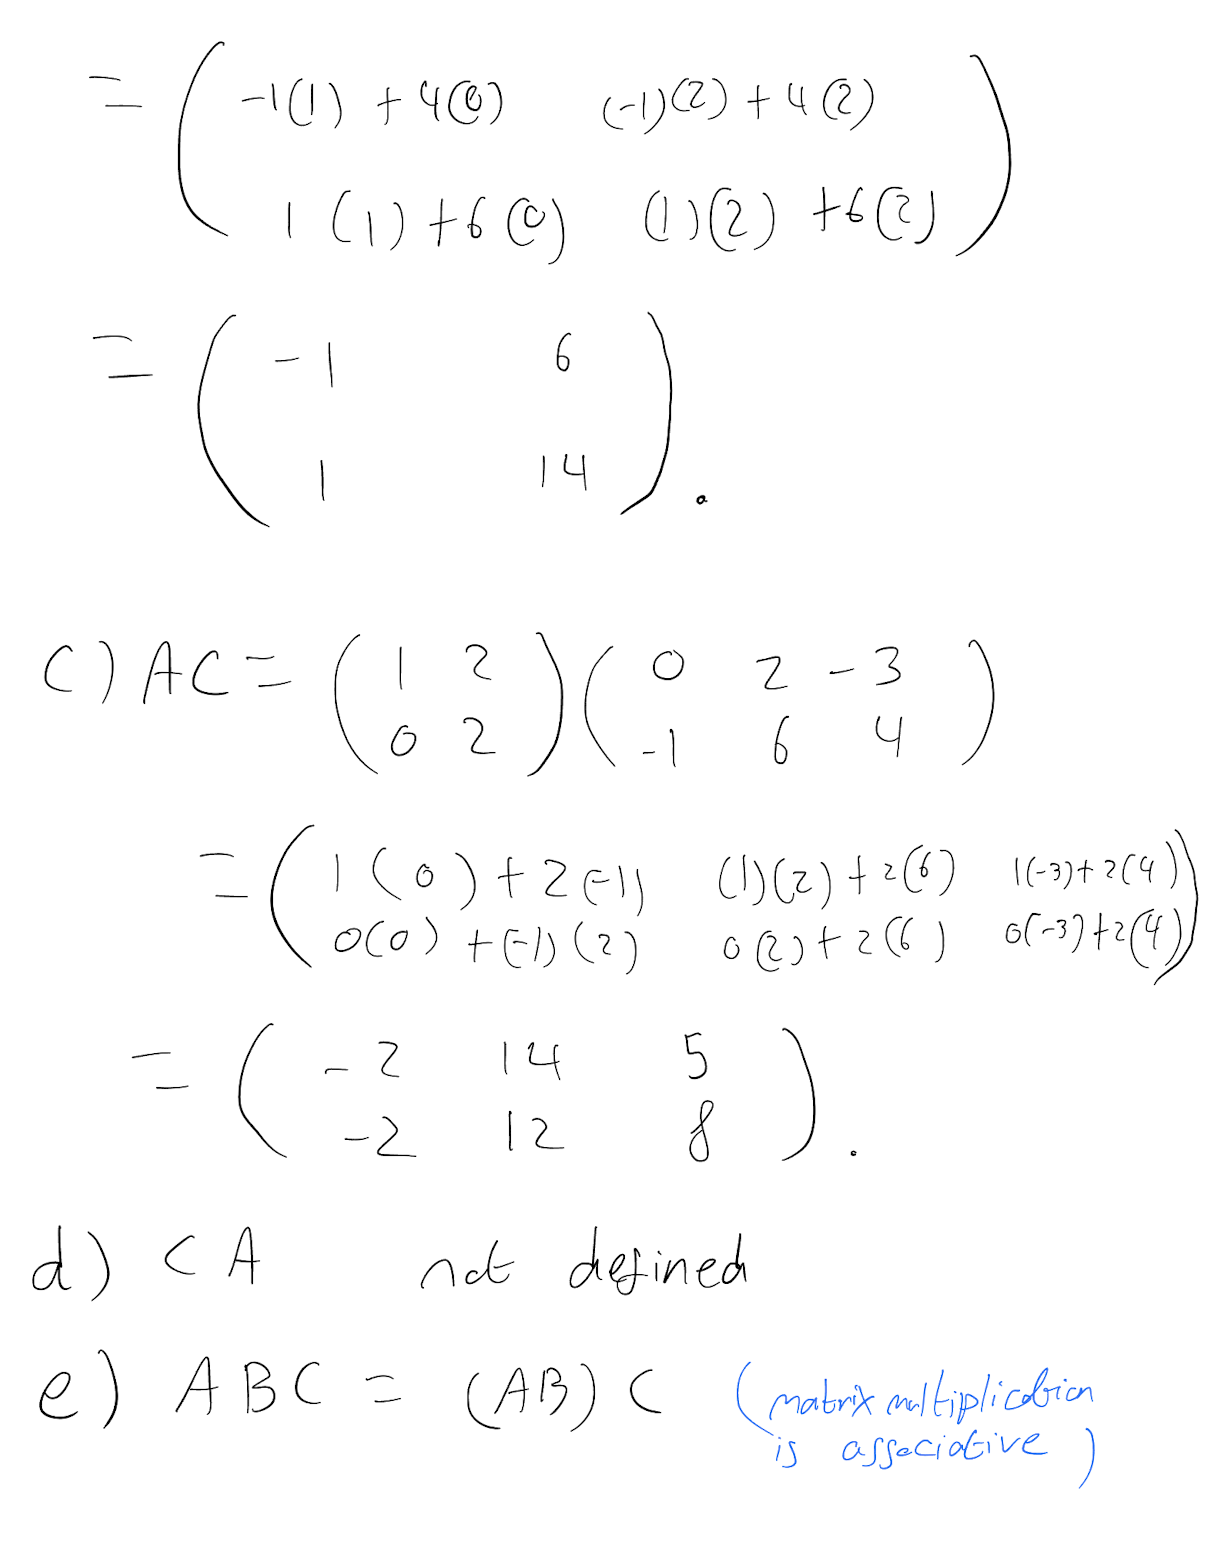 = ( -1(1) + 4(0) (-1)(2) + 4(2)
1(1) + 6(0) (1)(2) + 6(2) )
= ( -1 6
1 14 ).
c) AC = ( 1 2 ) ( 0 2 -3 )
0 2 -1 6 4
= ( 1(0) + 2(-1) (1)(2) + 2(6) 1(-3) + 2(4) )
0(0) + (-1)(2) 0(2) + 2(6) 0(-3) + 2(4)
= ( -2 14 5
-2 12 8 ).
d) CA not defined
e) ABC = (AB)C (matrix multiplication
is associative)